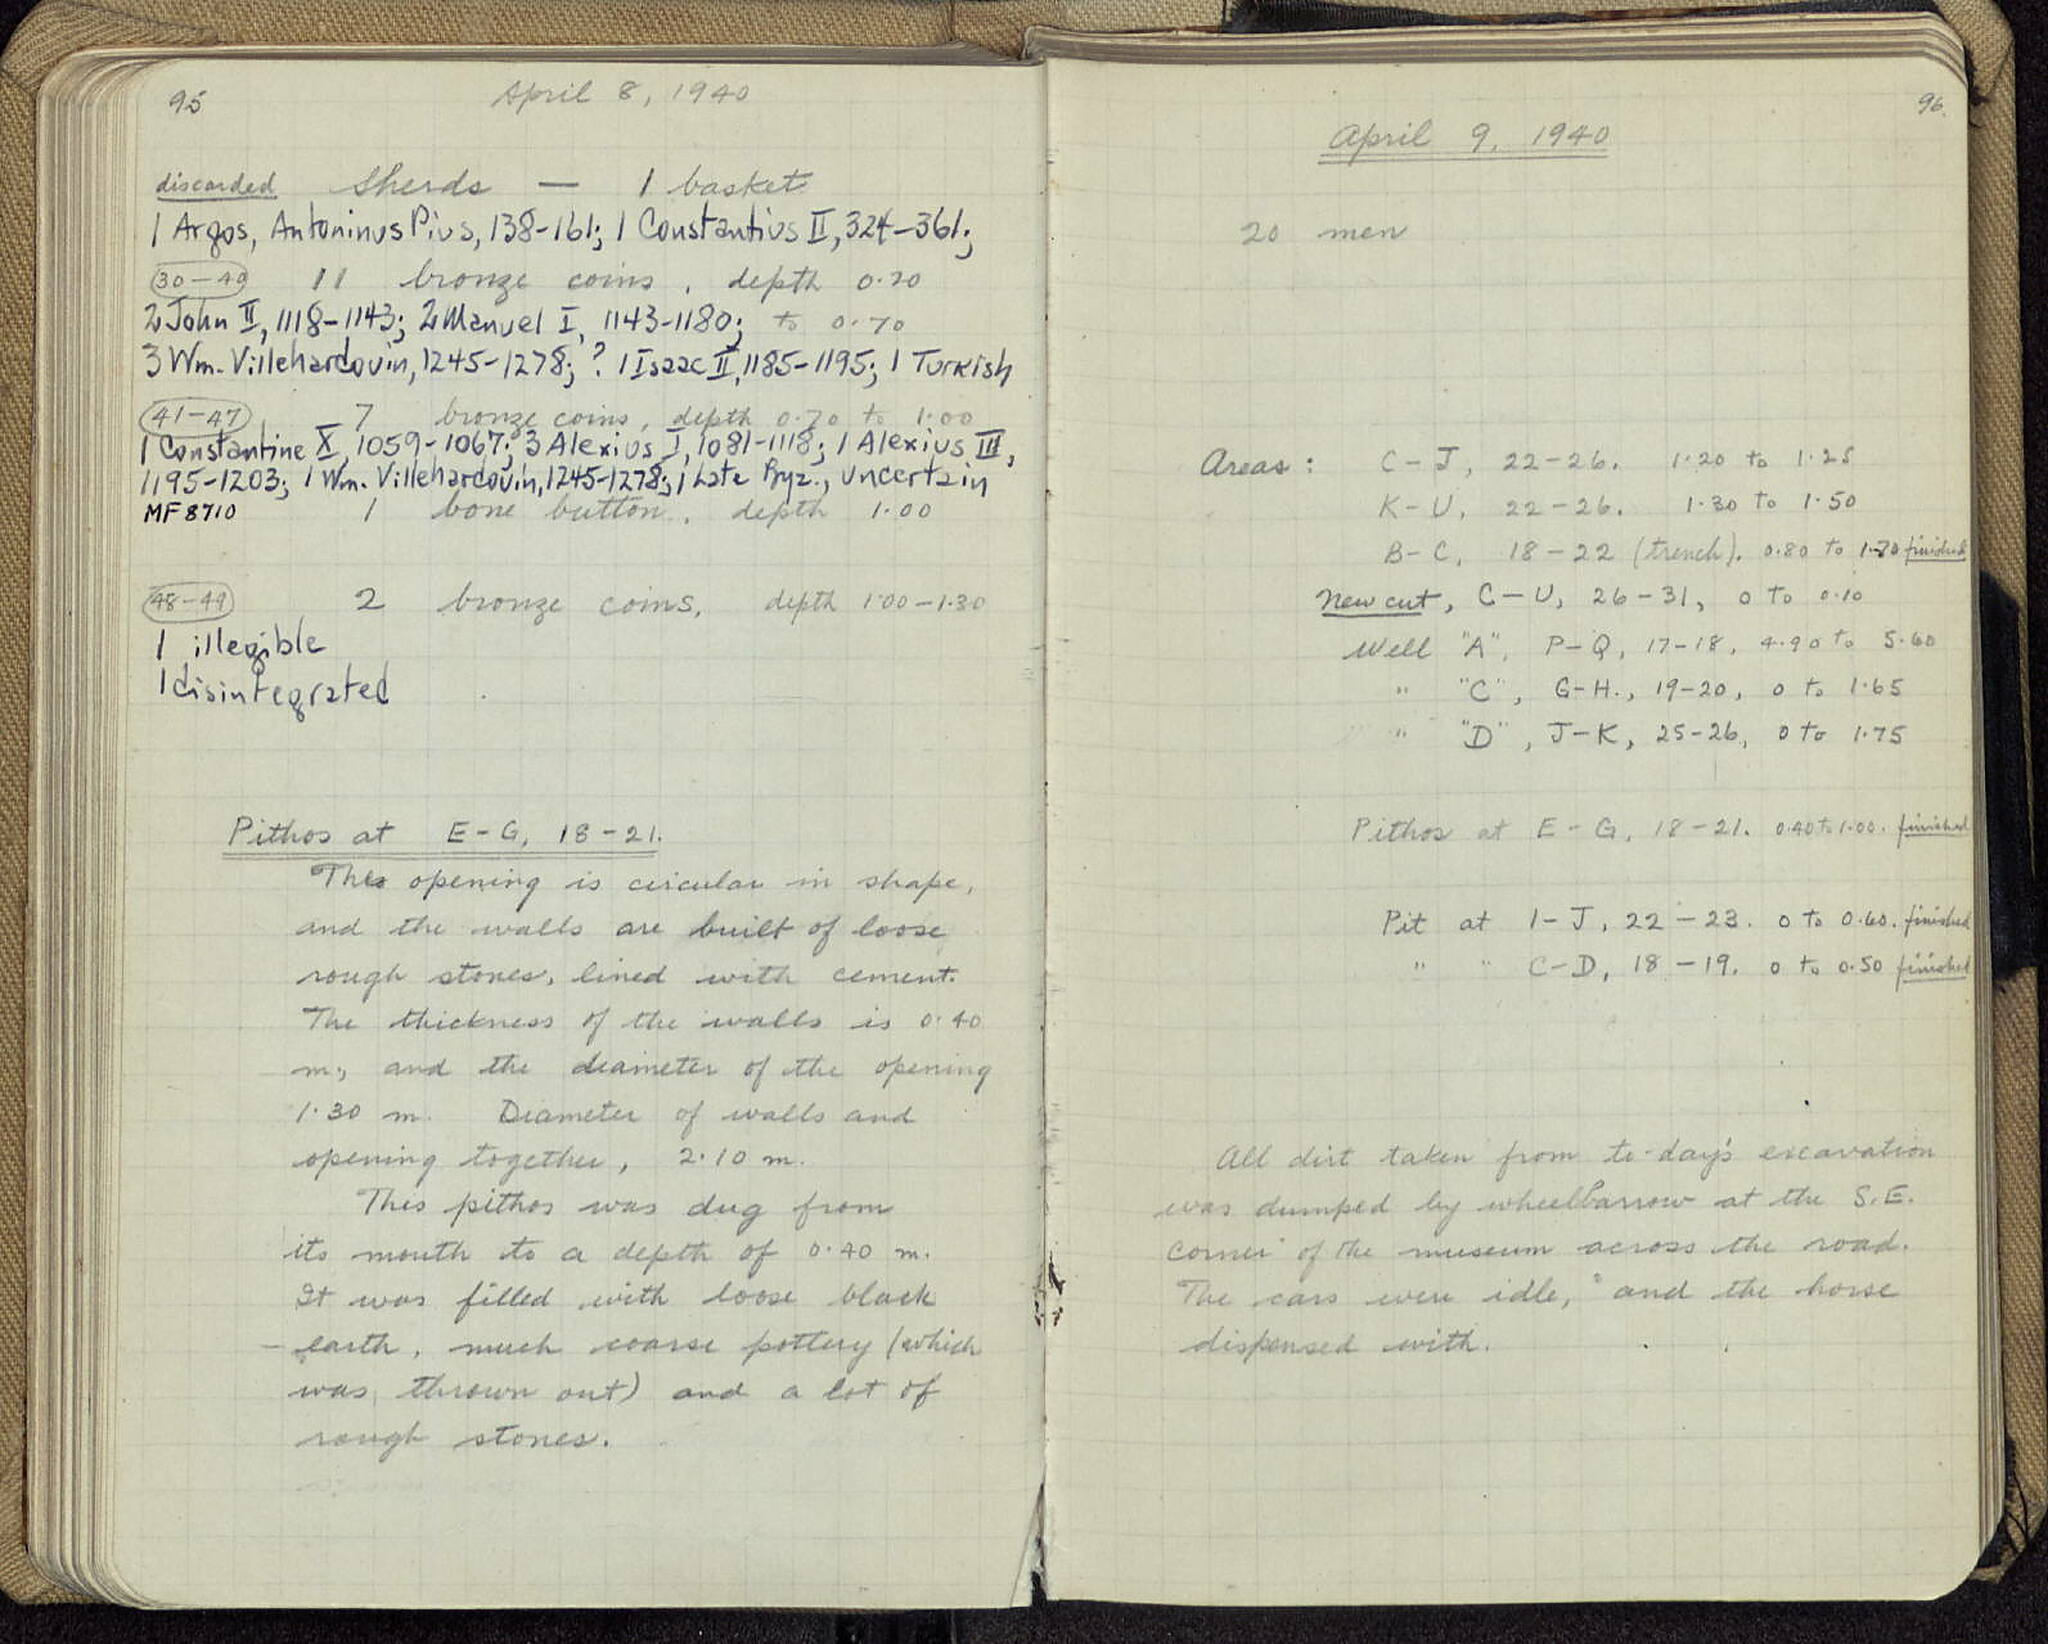 95
April 8, 1940
discarded Sherds — 1 basket
1 Argos, Antoninus Pius, 138-161; 1 Constantius II, 324-361;
30-40 11 bronze coins, depth 0.20
2 John II, 1118-1143; 2 Manuel I, 1143-1180; to 0.70
3 Wm. Villehardouin, 1245-1278; ? 1 Isaac II, 1185-1195; 1 Turkish
41-47 7 bronze coins, depth 0.70 to 1.00
1 Constantine X, 1059-1067; 3 Alexius I, 1081-1118; 1 Alexius III,
1195-1203; 1 Wm. Villehardouin, 1245-1278; 1 Late Byz., uncertain
MF 8710 1 bone button, depth 1.00
48-49 2 bronze coins, depth 1.00-1.30
1 illegible
1 disintegrated
Pithos at E-G, 18-21.
The opening is circular in shape,
and the walls are built of loose
rough stones, lined with cement.
The thickness of the walls is 0.40
m., and the diameter of the opening
1.30 m. Diameter of walls and
opening together, 2.10 m.
This pithos was dug from
its mouth to a depth of 0.40 m.
It was filled with loose black
earth, much coarse pottery (which
was thrown out) and a lot of
rough stones.
96
April 9, 1940
20 men
Areas: C-J, 22-26. 1.20 to 1.25
K-U, 22-26. 1.30 to 1.50
B-C, 18-22 (trench). 0.80 to 1.70 finished
New cut, C-U, 26-31, 0 to 0.10
Well "A", P-Q, 17-18, 4.90 to 5.60
" "C", G-H., 19-20, 0 to 1.65
" "D", J-K, 25-26, 0 to 1.75
Pithos at E-G, 18-21. 0.40 to 1.00. finished
Pit at I-J, 22-23. 0 to 0.60. finished
" " C-D, 18-19. 0 to 0.50 finished
All dirt taken from to-day's excavation
was dumped by wheelbarrow at the S.E.
corner of the museum across the road.
The cars were idle, and the horse
dispensed with.